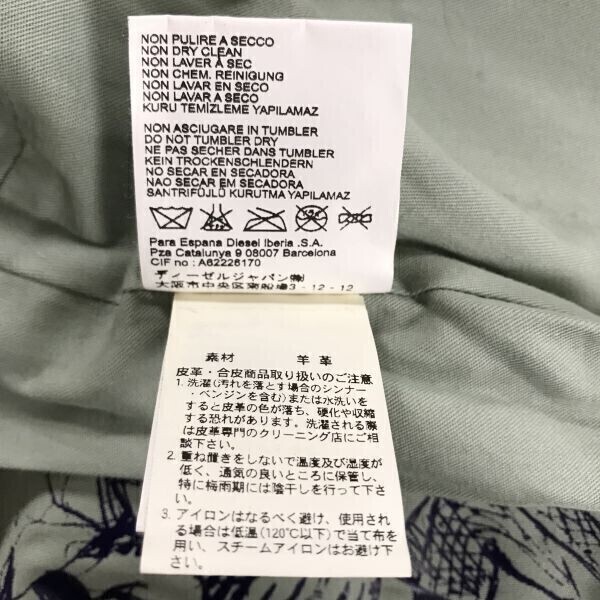 NON PULIRE A SECCO
NON DRY CLEAN
NON LAVER À SEC
NON CHEM. REINIGUNG
NON LAVAR EN SECO
NON LAVAR A SECO
KURU TEMİZLEME YAPILAMAZ
NON ASCIUGARE IN TUMBLER
DO NOT TUMBLER DRY
NE PAS SECHER DANS TUMBLER
KEIN TROCKENSCHLENDERN
NO SECAR EN SECADORA
NAO SECAR EM SECADORA
SANTRIFÜJLÜ KURUTMA YAPILAMAZ
Para Espana Diesel Iberia .S.A.
Pza Catalunya 9 08007 Barcelona
CIF no : A62226170
ディーゼルジャパン㈱
大阪市中央区南船場3-12-12
素材 羊革
皮革・合皮商品取り扱いのご注意
1. 洗濯(汚れを落とす場合のシンナー
・ベンジンを含む)または水洗いを
すると皮革の色が落ち、硬化や収縮
する恐れがあります。洗濯される際
は皮革専門のクリーニング店にご相
談下さい。
2. 重ね置きをしないで温度及び湿度が
低く、通気の良いところに保管し、
特に梅雨期には陰干しを行って下さ
い。
3. アイロンはなるべく避け、使用され
る場合は低温(120℃以下)で当て布を
用い、スチームアイロンはお避け下
さい。